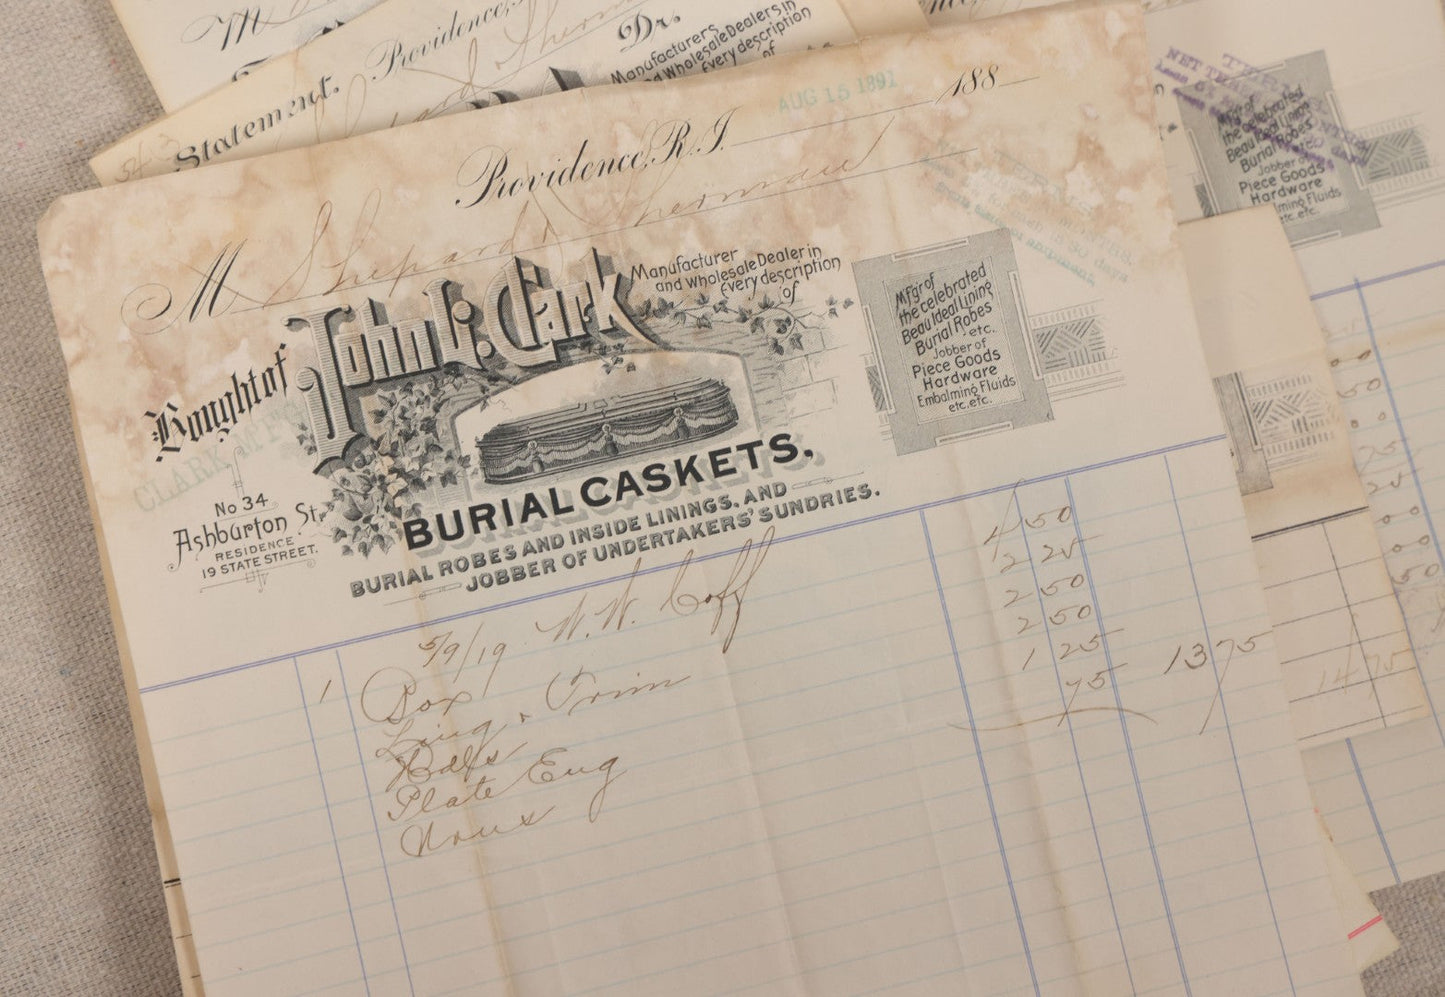 Providence,
Statement.
Dr.
Manufacturers
and Wholesale Dealers in
Every description
of
Providence, R.I.
AUG 15 1891
188
M Shepard & Sherman
Bought of
John G. Clark
Manufacturer
and wholesale Dealer in
Every description
of
BURIAL CASKETS.
BURIAL ROBES AND INSIDE LININGS, AND
JOBBER OF UNDERTAKERS' SUNDRIES.
No 34
Ashburton St.
RESIDENCE
19 STATE STREET.
Mfgr of
the celebrated
Beau Ideal Lining
Burial Robes
etc.
Jobber of
Piece Goods
Hardware
Embalming Fluids
etc. etc.
5/9/19 W. W. Goff
1 Box 4 50
Ling & Trim 2 25
Hdls 2 50
Plate Eng 2 50
1 25
75 13 75
Mfgr of
the celebrated
Beau Ideal Lining
Burial Robes
Jobber of
Piece Goods
Hardware
lming Fluids
etc. etc.
14 75